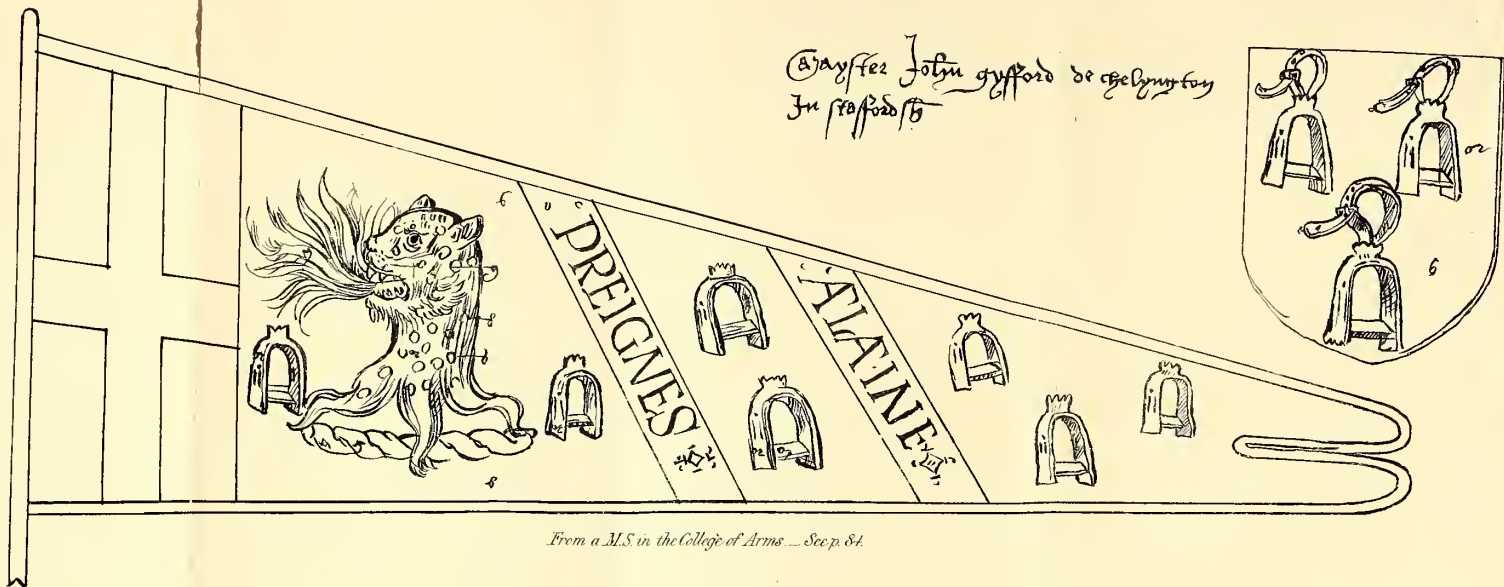 Mayster John gyfford de chelyngton
In staffordsh
or
PREIGNES
ALAINE
From a M.S. in the College of Arms. — See p. 84.